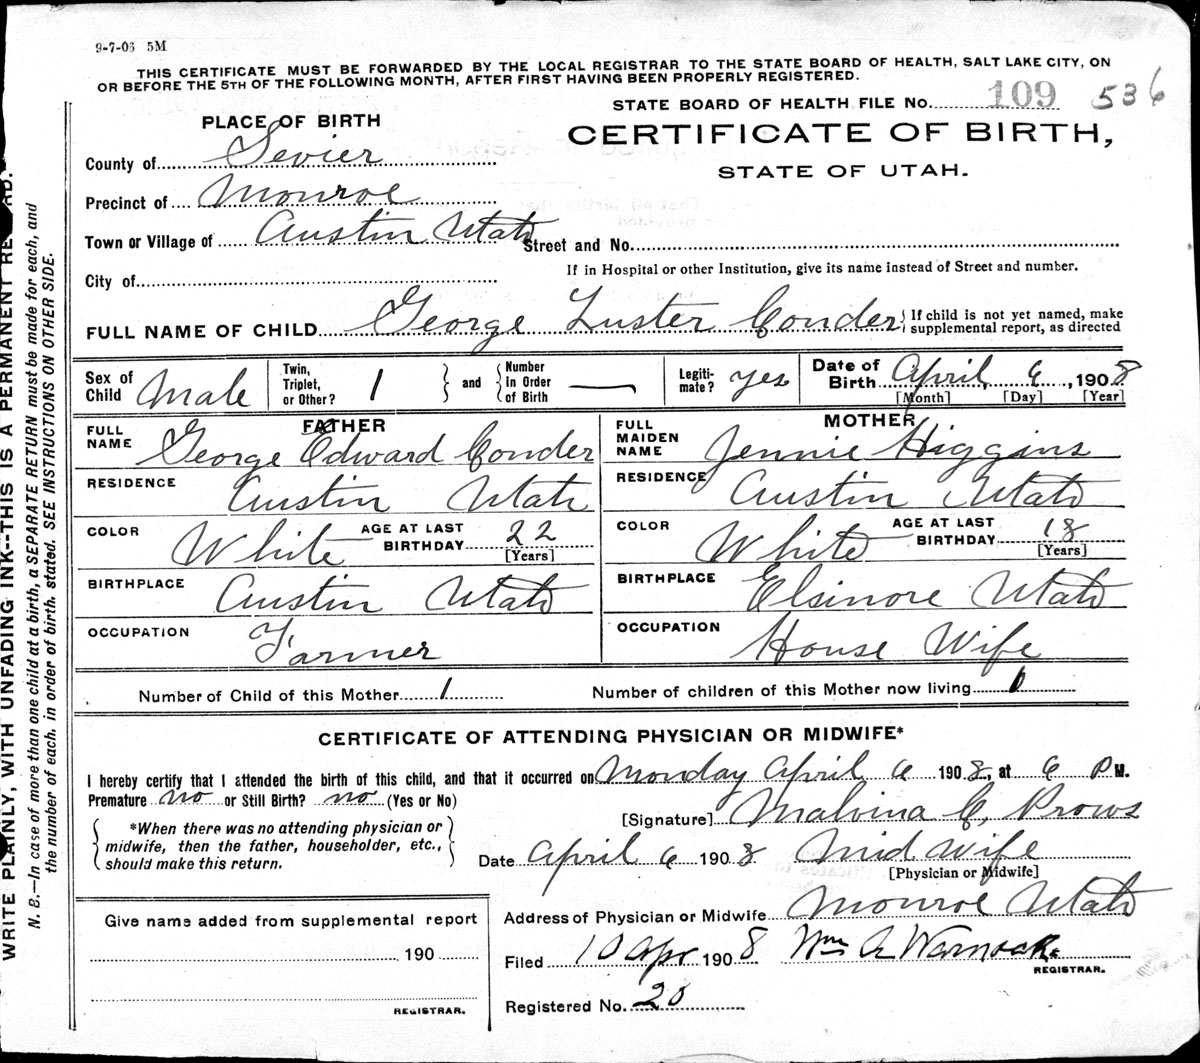 9-7-06 5M
THIS CERTIFICATE MUST BE FORWARDED BY THE LOCAL REGISTRAR TO THE STATE BOARD OF HEALTH, SALT LAKE CITY, ON
OR BEFORE THE 5TH OF THE FOLLOWING MONTH, AFTER FIRST HAVING BEEN PROPERLY REGISTERED.
STATE BOARD OF HEALTH FILE No. 109 536
PLACE OF BIRTH
CERTIFICATE OF BIRTH,
STATE OF UTAH.
County of Sevier
Precinct of Monroe
Town or Village of Austin Utah Street and No.
If in Hospital or other Institution, give its name instead of Street and number.
City of
FULL NAME OF CHILD George Luster Conder { If child is not yet named, make
supplemental report, as directed
Sex of Child Male Twin, Triplet, or Other? 1 } and { Number in Order of Birth — Legitimate? yes Date of Birth April 6, 1908
[Month] [Day] [Year]
FATHER
FULL NAME George Edward Conder
RESIDENCE Austin Utah
COLOR White AGE AT LAST BIRTHDAY 22 [Years]
BIRTHPLACE Austin Utah
OCCUPATION Farmer
MOTHER
FULL MAIDEN NAME Jennie Higgins
RESIDENCE Austin Utah
COLOR White AGE AT LAST BIRTHDAY 18 [Years]
BIRTHPLACE Elsinore Utah
OCCUPATION House Wife
Number of Child of this Mother 1 Number of children of this Mother now living 1
CERTIFICATE OF ATTENDING PHYSICIAN OR MIDWIFE*
I hereby certify that I attended the birth of this child, and that it occurred on Monday April 6 1908, at 6 P M.
Premature no or Still Birth? no (Yes or No)
*When there was no attending physician or
midwife, then the father, householder, etc.,
should make this return.
[Signature] Malvina C. Prows
Date April 6 1908 Mid wife
[Physician or Midwife]
Address of Physician or Midwife Monroe Utah
Filed 10 Apr 1908 Wm A Warnock
REGISTRAR.
Registered No. 20
Give name added from supplemental report
190
REGISTRAR.
WRITE PLAINLY, WITH UNFADING INK--THIS IS A PERMANENT
N. B.—In case of more than one child at a birth, a SEPARATE RETURN must be made for each, and
the number of each, in order of birth, stated. SEE INSTRUCTIONS ON OTHER SIDE.